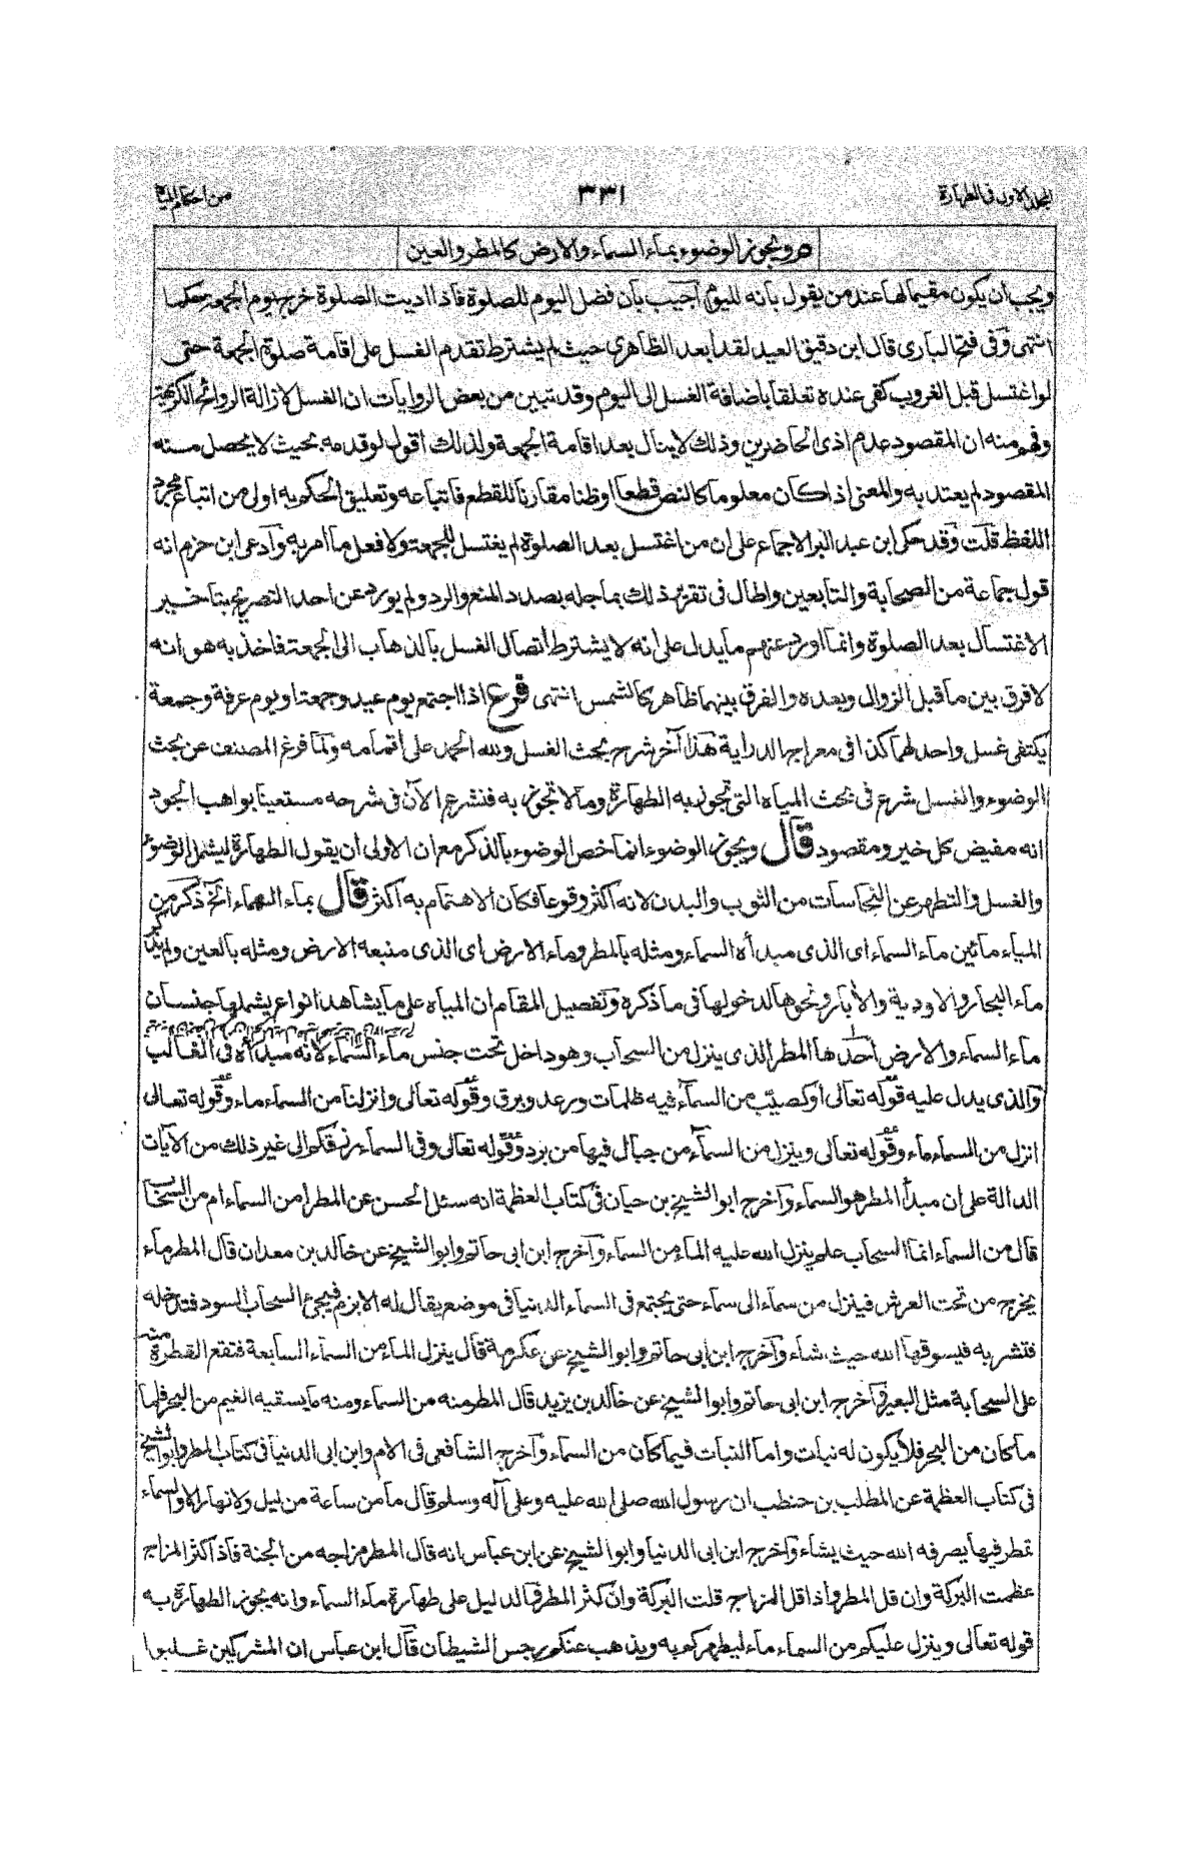 المجلد الاول فی الطهارة ٣٣١ من احکام المیاه
ص ويجوز الوضوء بماء السماء والارض كالمطر والعين
ويجب ان يكون مقيما لها عند من يقول بانه لليوم اجيب بان فضل اليوم للصلوة فاذا اديت الصلوة خرج يوم الجمعة حكما
انتهى وفى فتح البارى قال ابن دقيق العيد لقد ابعد الظاهرى حيث لم يشترط تقدم الغسل على اقامة صلوة الجمعة حتى
لو اغتسل قبل الغروب كفى عنده تعلقا باضافة الغسل الى اليوم وقد تبين من بعض الروايات ان الغسل لازالة الروائح الكريهة
وفهم منه ان المقصود عدم اذى الحاضرين وذلك لا ينال بعد اقامة الجمعة ولذلك اقول لو قدمه بحيث لا يحصل منه
المقصود لم يعتد به والمعنى اذا كان معلوما كالنص قطعا او ظنا مقارنا للقطع فاتباعه وتعليق الحكم به اولى من اتباع مجرد
اللفظ قلت وقد حكى ابن عبد البر الاجماع على ان من اغتسل بعد الصلوة لم يغتسل للجمعة ولا فعل ما امر به وادعى ابن حزم انه
قول جماعة من الصحابة والتابعين واطال فى تقرير ذلك بما جله بصدد المنع والرد ولم يورد عن احد التصريح بتاخير
الاغتسال بعد الصلوة وانما اورد عنهم ما يدل على انه لا يشترط اتصال الغسل بالذهاب الى الجمعة فاخذ به هو انه
لا فرق بين ما قبل الزوال وبعده والفرق بينهما ظاهر كالشمس انتهى فرع اذا اجتمع يوم عيد وجمعة او يوم عرفة وجمعة
يكتفى غسل واحد لهما كذا فى معراج الدراية هذا آخر شرح بحث الغسل ولله الحمد على اتمامه ولما فرغ المصنف عن بحث
الوضوء والغسل شرع فى بحث المياه التى تجوز به الطهارة وما لا تجوز به فنشرع الآن فى شرحه مستعينا بواهب الجود
انه مفيض كل خير ومقصود قال ويجوز الوضوء انما خص الوضوء بالذكر مع ان الاولى ان يقول الطهارة ليشمل الوضوء
والغسل والتطهر عن النجاسات من الثوب والبدن لانه اكثر وقوعا فكان الاهتمام به اكثر قال بماء السماء الخ ذكر من
المياه مائين ماء السماء اى الذى مبدأه السماء ومثله بالمطر وماء الارض اى الذى منبعه الارض ومثله بالعين ولم يذكر
ماء البحار والاودية والآبار ونحوها لدخولها فى ما ذكره وتفصيل المقام ان المياه على ما يشاهد انواع يشملها جنسان
ماء السماء والارض احدها المطر الذى ينزل من السحاب وهو داخل تحت جنس ماء السماء لانه مبدأه فى الغالب
والذى يدل عليه قوله تعالى او كصيب من السماء فيه ظلمات ورعد وبرق وقوله تعالى وانزلنا من السماء ماء وقوله تعالى
انزل من السماء ماء وقوله تعالى وينزل من السماء من جبال فيها من برد وقوله تعالى وفى السماء رزقكم الى غير ذلك من الآيات
الدالة على ان مبدأ المطر هو السماء وآخرج ابو الشيخ بن حيان فى كتاب العظمة انه سئل الحسن عن المطر امن السماء ام من السحاب
قال من السماء انما السحاب علم ينزل الله عليه الماء من السماء وآخرج ابن ابى حاتم وابو الشيخ عن خالد بن معدان قال المطر ماء
يخرج من تحت العرش فينزل من سماء الى سماء حتى يجتمع فى السماء الدنيا فى موضع يقال له الابزم فيجئ السحاب السود فتدخله
فتشربه فيسوقها الله حيث شاء وآخرج ابن ابى حاتم وابو الشيخ عن عكرمة قال ينزل الماء من السماء السابعة فتقع القطرة منه
على السحابة مثل البعير وآخرج ابن ابى حاتم وابو الشيخ عن خالد بن يزيد قال المطر منه من السماء ومنه ما يسقيه الغيم من البحر فاما
ما كان من البحر فلا يكون له نبات واما النبات فيما كان من السماء وآخرج الشافعى فى الام وابن ابى الدنيا فى كتاب المطر وابو الشيخ
فى كتاب العظمة عن المطلب بن حنطب ان رسول الله صلى الله عليه وعلى آله وسلم قال ما من ساعة من ليل ولا نهار الا والسماء
تمطر فيها يصرفه الله حيث يشاء وآخرج ابن ابى الدنيا وابو الشيخ عن ابن عباس انه قال المطر مزاجه من الجنة فاذا كثر المزاج
عظمت البركة وان قل المطر واذا قل المزاج قلت البركة وان كثر المطر فالدليل على طهارة ماء السماء وانه يجوز الطهارة به
قوله تعالى وينزل عليكم من السماء ماء ليطهركم به ويذهب عنكم رجس الشيطان قال ابن عباس ان المشركين غلبوا